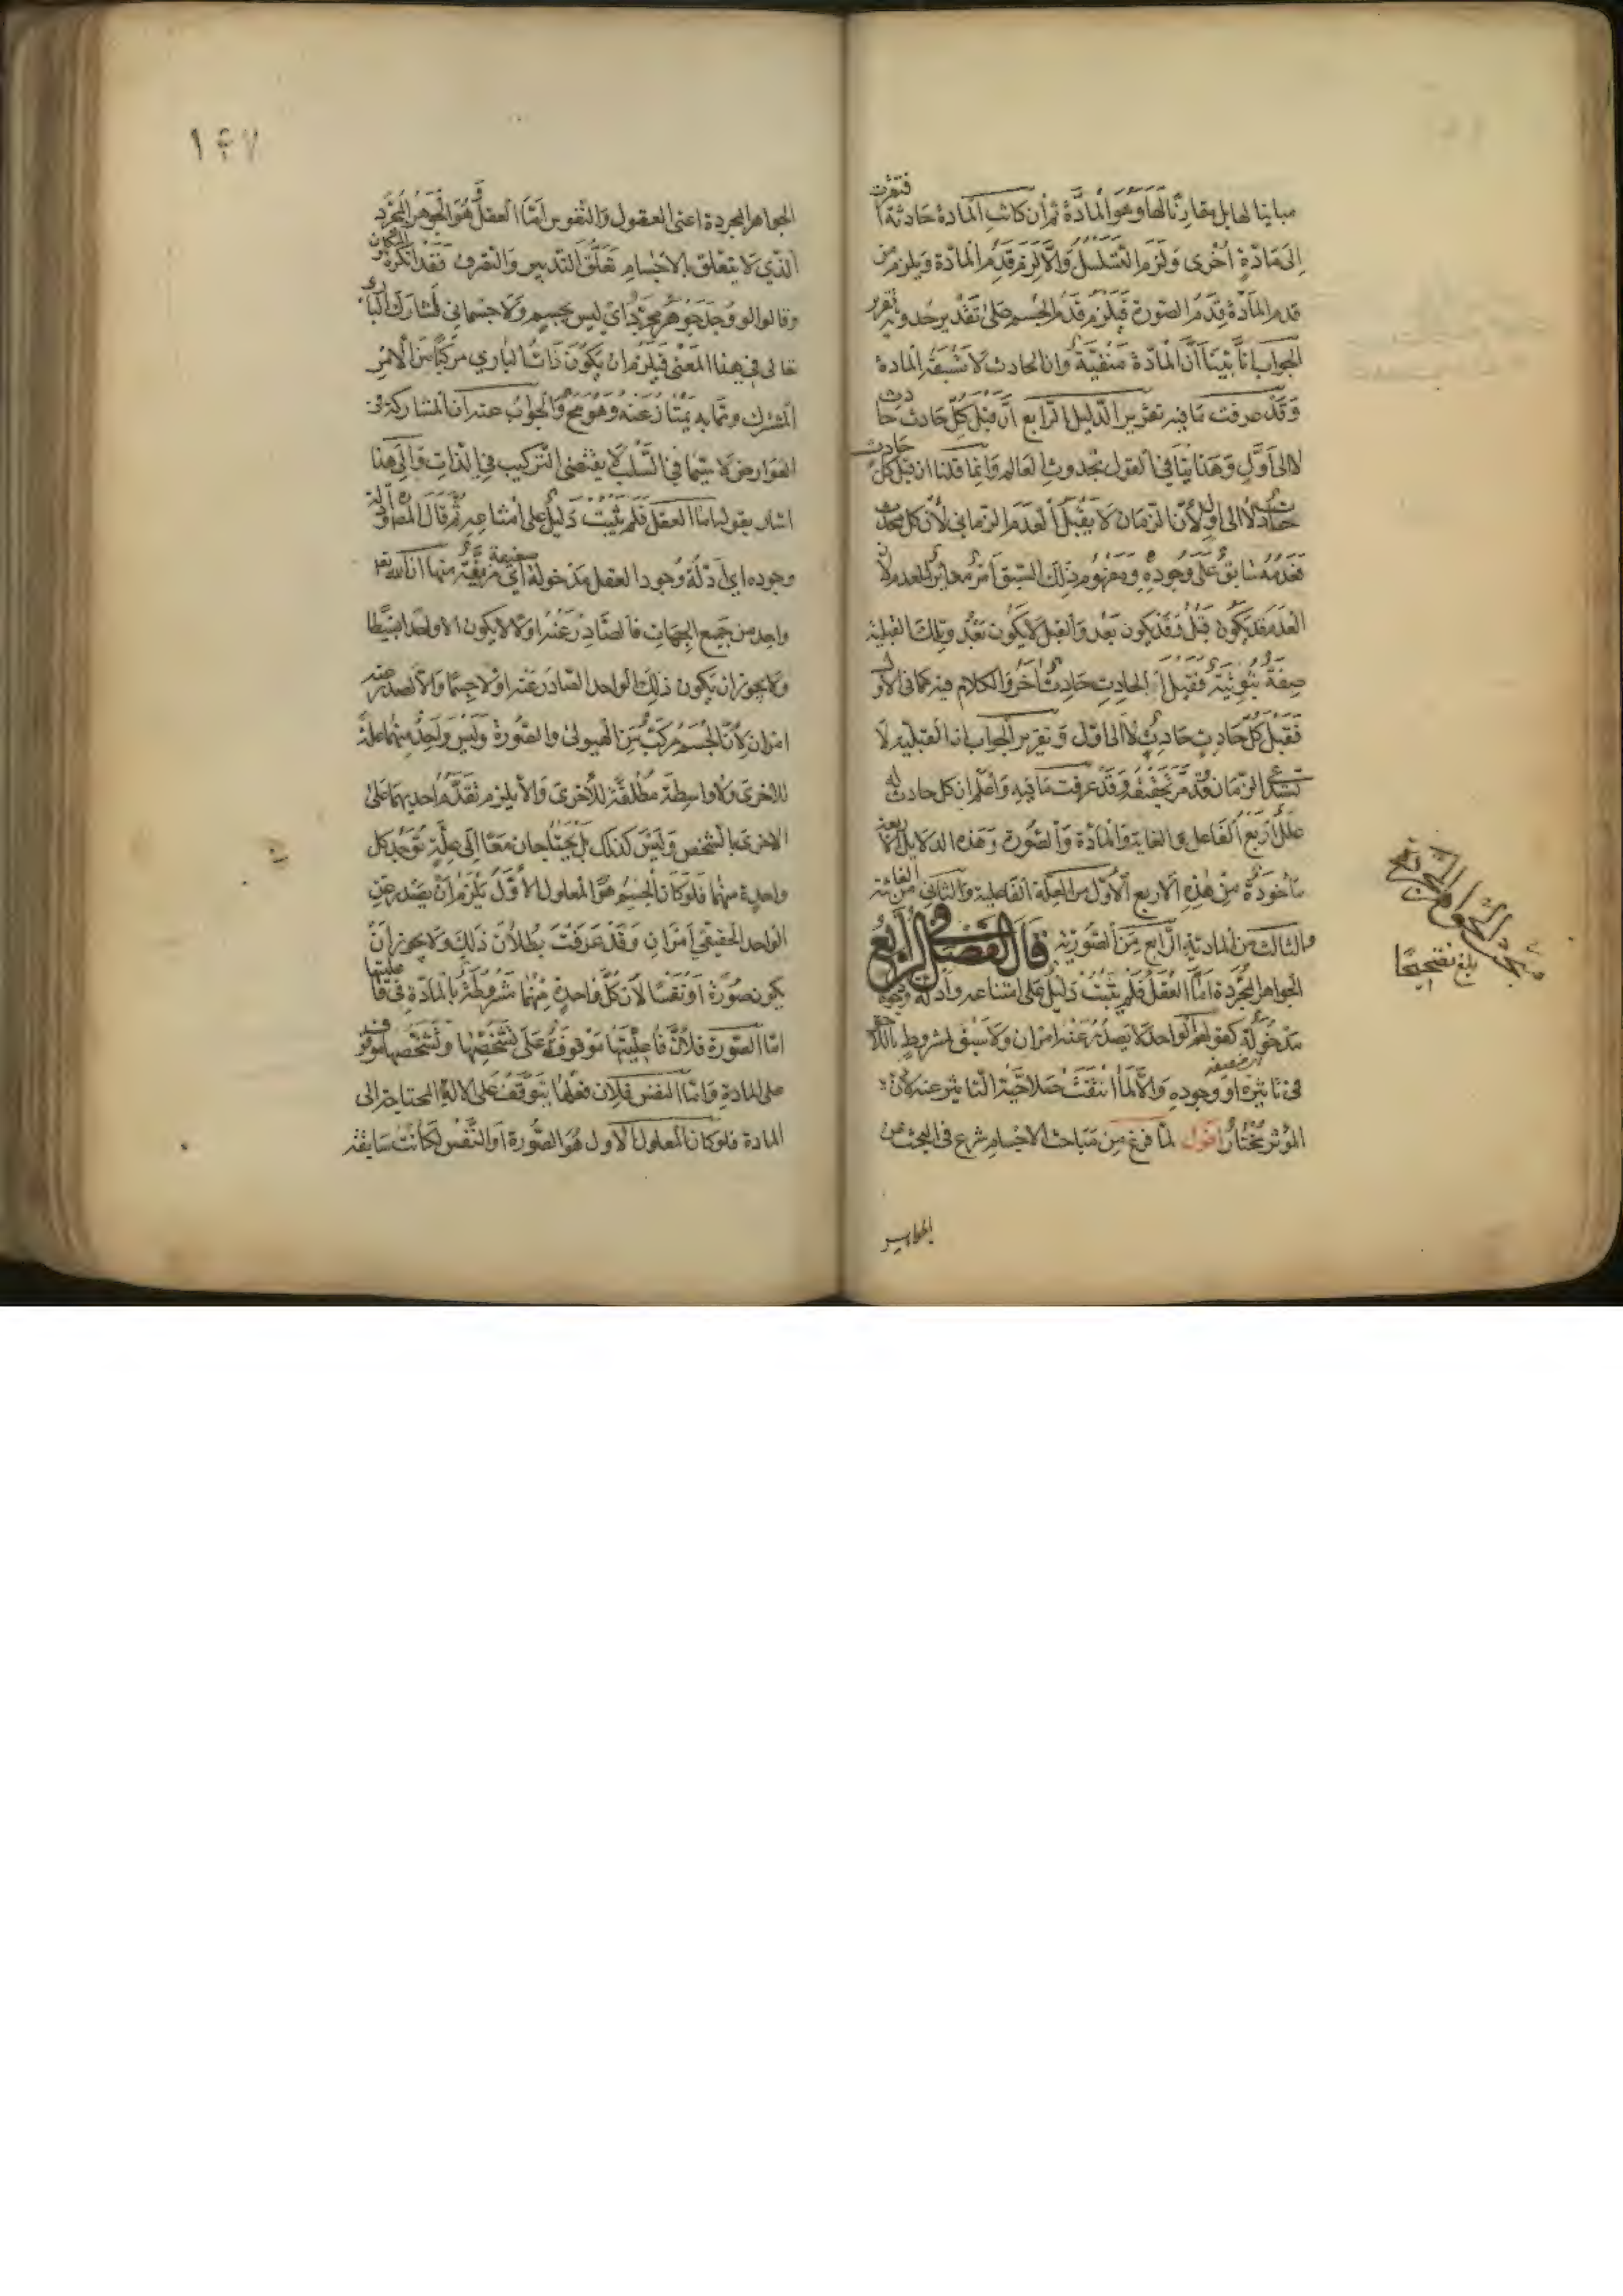 مباينا لها بل مقارنا لها وهو المادة ثم ان كانت المادة حادثة افتقرت
الى مادة اخرى ولزم التسلسل والا لزم قدم المادة ويلزم من
قدم المادة قدم الصورة فيلزم قدم الجسم على تقدير حدوثه تقرير
الجواب انا بينا ان المادة منفية وان الحادث لا تسبقه المادة
وقد عرفت ما فيه تقرير الدليل الرابع ان قبل كل حادث حادث
لا الى اول وهذا ينافي القول بحدوث العالم وانما قلنا ان قبل كل حادث
حادث لا الى اول لان الزمان لا يقبل العدم الزماني لان كل محدث
فعدمه سابق على وجوده ومفهوم ذلك السبق امر مغاير للعدم لان
العدم قد يكون قبل وقد يكون بعد والقبل لا يكون بعد وتلك القبلية
صفة ثبوتية فقبل الحادث حادث آخر والكلام فيه كما في الاول
فقبل كل حادث حادث لا الى اول وتقرير الجواب ان القبلية لا
تستدعي الزمان وقد مر تحقيقه وقد عرفت ما فيه واعلم ان كل حادث له
علل اربع الفاعل والغاية والمادة والصورة وهذه الدلايل الاربعة
مأخوذة من هذه الاربع الاول من العلة الفاعلية والثاني من الغائية
والثالث من المادية الرابع من الصورية قال الفصل الرابع في
الجواهر المجردة اما العقل فلم يثبت دليل على امتناعه وادلة وجوده
مدخولة كقولهم الواحد لا يصدر عنه امران ولا سبق لمشروط باللاحق
في تأثيره او وجوده والا لما انتفت صلاحية التأثير عنه لان
المؤثر مختار اقول لما فرغ من مباحث الاجسام شرع في البحث عن
الجواهر
بلغ تصحيحا
١٤٧
الجواهر المجردة اعني العقول والنفوس اما العقل وهو الجوهر المجرد
الذي لا يتعلق بالاجسام تعلق التدبير والتصرف فقد انكره المتكلمون
وقالوا لو وجد جوهر مجرد اي ليس بجسم ولا جسماني لشارك الباري
تعالى في هذا المعنى فيلزم ان يكون ذات الباري مركبا من الامر
المشترك ومما به يمتاز عنه وهو مح والجواب عنه ان المشاركة في
العوارض لا سيما في السلب لا يقتضي التركيب في الذات والى هذا
اشار بقوله اما العقل فلم يثبت دليل على امتناعه ثم قال المصنف وادلة
وجوده اي ادلة وجود العقل مدخولة اي مزيفة ضعيفة منها ان الله تعالى
واحد من جميع الجهات فالصادر عنه اولا لا يكون الا واحدا بسيطا
ولا يجوز ان يكون ذلك الواحد الصادر عنه اولا جسما والا لصدر عنه
امران لان الجسم مركب من الهيولى والصورة وليس واحد منهما علة
للاخرى ولا واسطة مطلقة للاخرى والا يلزم تقدم احديهما على
الاخرى بالشخص وليس كذلك بل يحتاجان معا الى علة توجد كل
واحدة منهما فلو كان الجسم هو المعلول الاول يلزم ان يصدر عن
الواحد الحقيقي امران وقد عرفت بطلان ذلك ولا يجوز ان
يكون صورة او نفسا لان كل واحدة منهما مشروطة بالمادة في فاعليتها
اما الصورة فلان فاعليتها موقوفة على تشخصها وتشخصها موقوف
على المادة واما النفس فلان فعلها يتوقف على الآلة المحتاجة الى
المادة فلو كان المعلول الاول هو الصورة او النفس لكانت سابقة